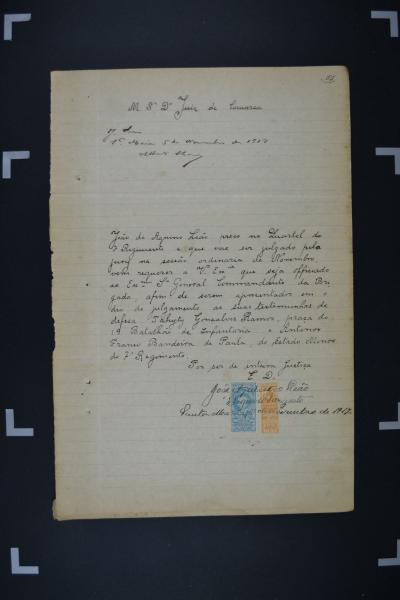 M. Sr. Dr. Juiz de Comarca
5 de Novembro de 1917
João de Aquino Leão preso no Quartel do
7 Regimento e que vae ser julgado pelo
jury na sessão ordinaria de Novembro,
vem requerer a V. Exma. que seja officiado
ao Exmo. Sr. General Commandante da Bri
gada, afim de serem apresentados em o
dia do julgamento as suas testemunhas de
defesa Gonsalves Ramos, praça do
Batalhão de Infantaria e Antonio
Bandeira de Paula, do Estado Menor
do 7º Regimento.
Por ser de inteira Justiça
E. D.
Leão
Santa de Novembro de 1917.